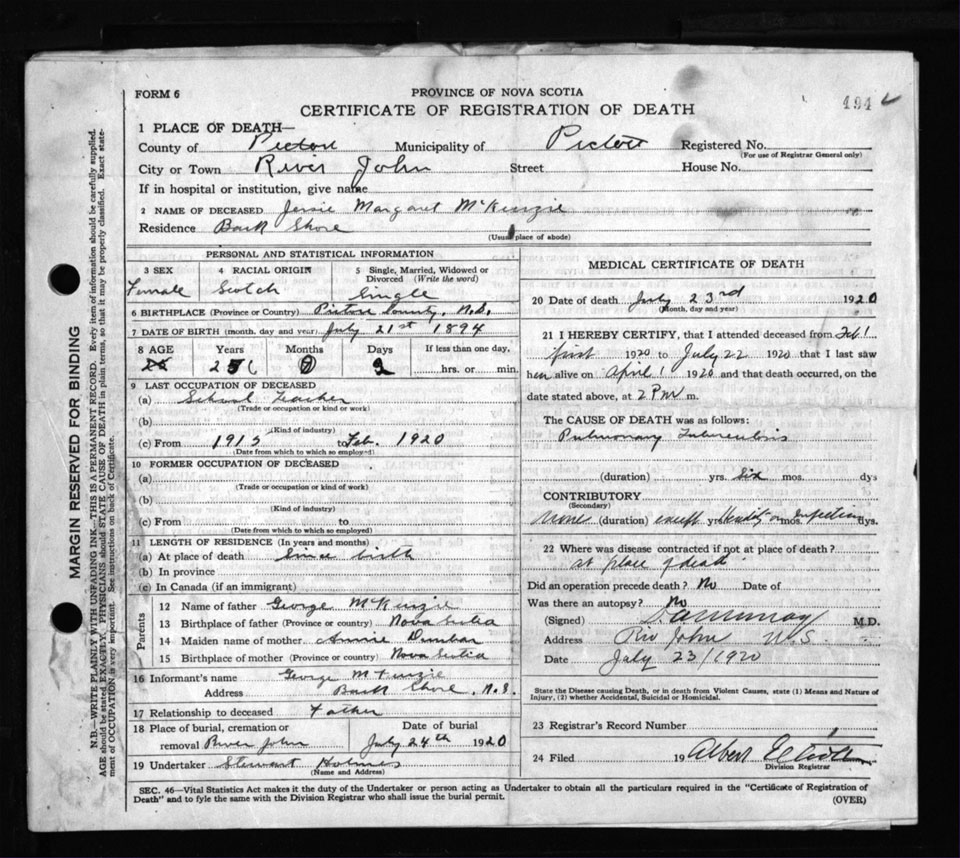 FORM 6
PROVINCE OF NOVA SCOTIA
CERTIFICATE OF REGISTRATION OF DEATH
494
1 PLACE OF DEATH—
County of Pictou Municipality of Pictou Registered No.
(For use of Registrar General only)
City or Town River John Street House No.
If in hospital or institution, give name
2 NAME OF DECEASED Jessie Margaret McKenzie
Residence Back Shore
(Usual place of abode)
PERSONAL AND STATISTICAL INFORMATION
3 SEX Female
4 RACIAL ORIGIN Scotch
5 Single, Married, Widowed or Divorced (Write the word) Single
6 BIRTHPLACE (Province or Country) Pictou County, N.S.
7 DATE OF BIRTH (month, day and year) July 21st 1894
8 AGE Years Months Days If less than one day,
2 hrs. or min.
9 LAST OCCUPATION OF DECEASED
(a) School Teacher
(Trade or occupation or kind or work)
(b)
(Kind of industry)
(c) From 1915 to Feb. 1920
(Date from which to which so employed)
10 FORMER OCCUPATION OF DECEASED
(a)
(Trade or occupation or kind of work)
(b)
(Kind of industry)
(c) From to
(Date from which to which so employed)
11 LENGTH OF RESIDENCE (In years and months)
(a) At place of death Since birth
(b) In province
(c) In Canada (if an immigrant)
Parents
12 Name of father George McKenzie
13 Birthplace of father (Province or country) Nova Scotia
14 Maiden name of mother Annie Dunbar
15 Birthplace of mother (Province or country) Nova Scotia
16 Informant's name George McKenzie
Address Back Shore, N.S.
17 Relationship to deceased Father
18 Place of burial, cremation or removal River John
Date of burial July 24th 1920
19 Undertaker Stewart Holmes
(Name and Address)
MEDICAL CERTIFICATE OF DEATH
20 Date of death July 23rd 1920
(Month, day and year)
21 I HEREBY CERTIFY, that I attended deceased from Feb 1
first 1920 to July 22 1920 that I last saw
her alive on April 1 1920 and that death occurred, on the
date stated above, at 2 PM m.
The CAUSE OF DEATH was as follows:
Pulmonary Tuberculosis
(duration) yrs. six mos. dys
CONTRIBUTORY
(Secondary)
None (duration) except yrs. mos. Infection dys.
22 Where was disease contracted if not at place of death?
at place of death
Did an operation precede death? No Date of
Was there an autopsy? No
(Signed) M.D.
Address Riv John N.S.
Date July 23/1920
State the Disease causing Death, or in death from Violent Causes, state (1) Means and Nature of
Injury, (2) whether Accidental, Suicidal or Homicidal.
23 Registrar's Record Number
24 Filed 19 Albert Elliott
Division Registrar
SEC. 46—Vital Statistics Act makes it the duty of the Undertaker or person acting as Undertaker to obtain all the particulars required in the "Certificate of Registration of
Death" and to fyle the same with the Division Registrar who shall issue the burial permit.
(OVER)
MARGIN RESERVED FOR BINDING
N.B.—WRITE PLAINLY WITH UNFADING INK—THIS IS A PERMANENT RECORD. Every item of information should be carefully supplied.
AGE should be stated EXACTLY. PHYSICIANS should STATE CAUSE OF DEATH in plain terms, so that it may be properly classified. Exact state-
ment of OCCUPATION is very important. See instructions on back of Certificate.